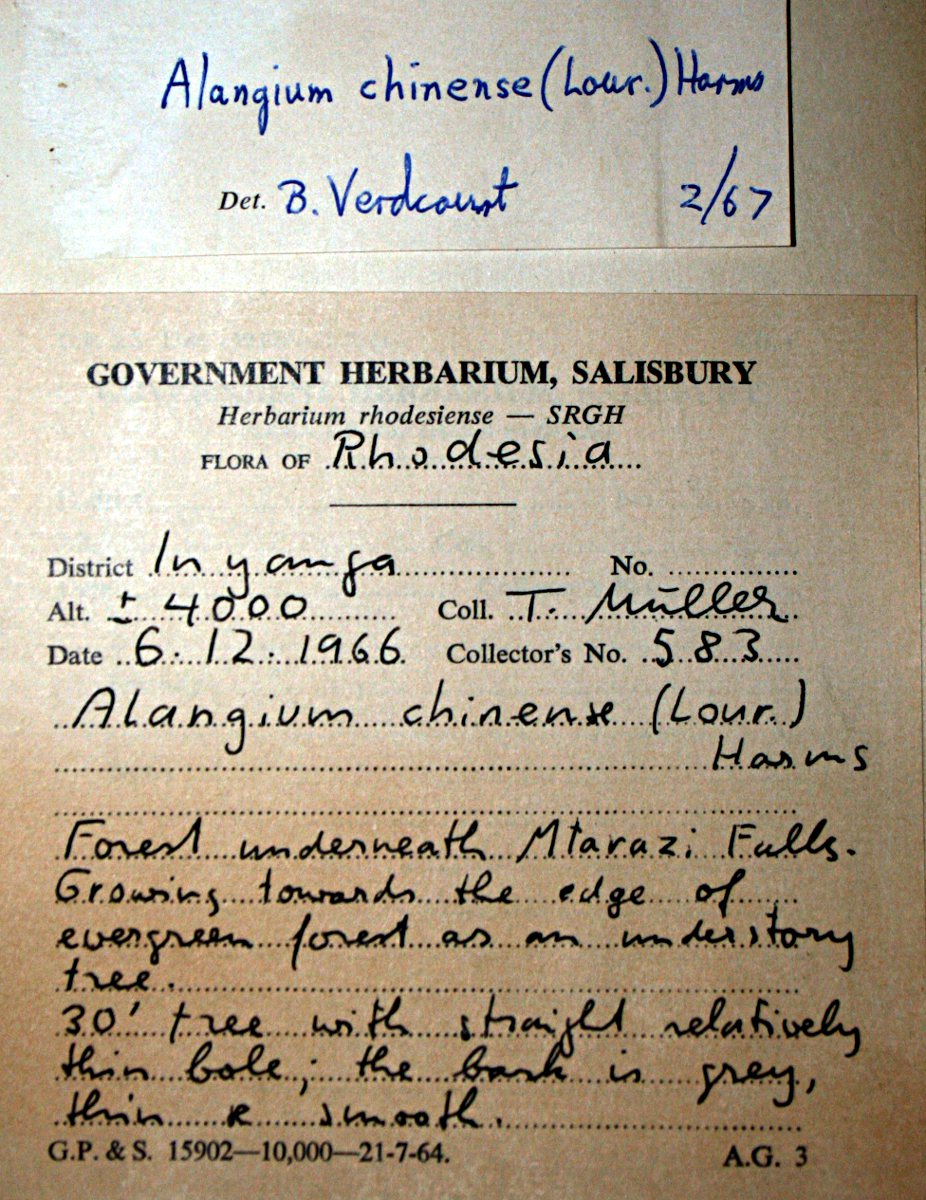 Alangium chinense (Lour.) Harms
Det. B. Verdcourt 2/67
GOVERNMENT HERBARIUM, SALISBURY
Herbarium rhodesiense — SRGH
FLORA OF Rhodesia
District Inyanga No.
Alt. ± 4000 Coll. T. Müller
Date 6.12.1966. Collector's No. 583
Alangium chinense (Lour.)
Harms
Forest underneath Mtarazi Falls.
Growing towards the edge of
evergreen forest as an understory
tree.
30' tree with straight relatively
thin bole; the bark is grey,
thin & smooth.
G.P. & S. 15902—10,000—21-7-64. A.G. 3